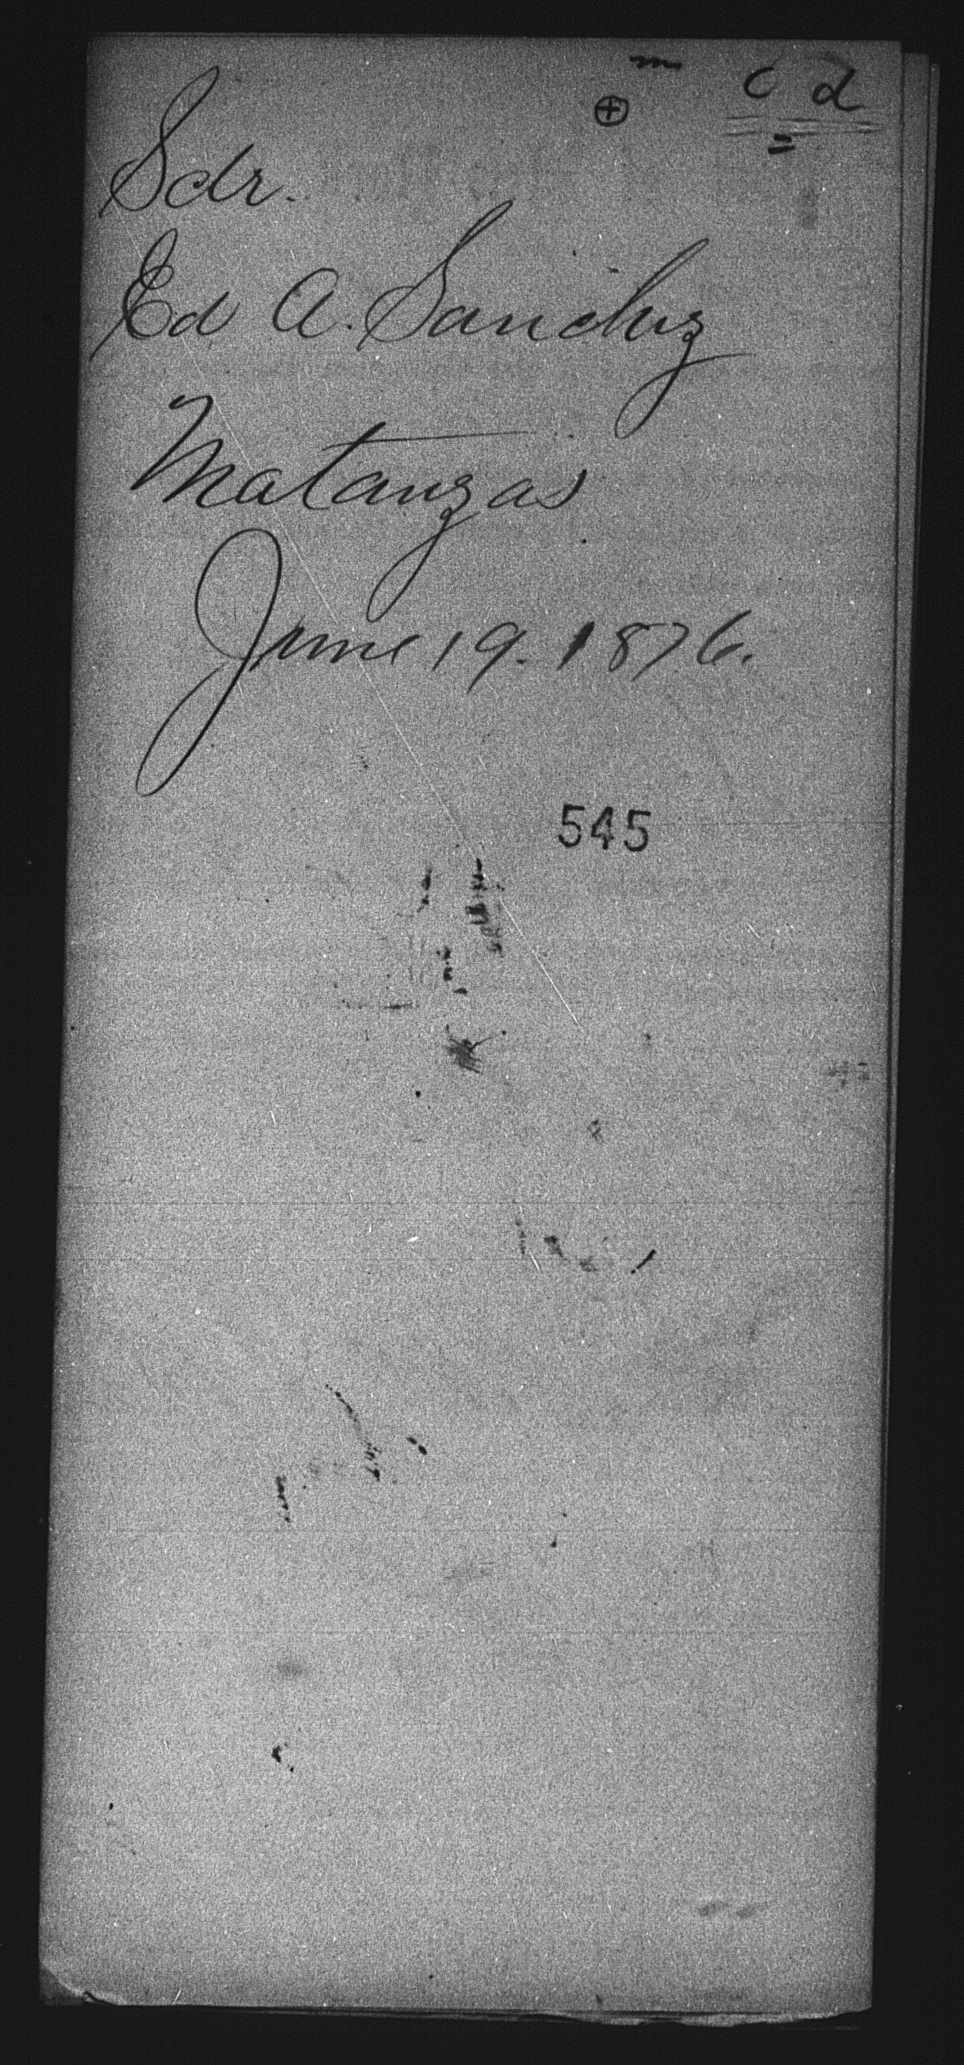 m c d
Sdr.
Ed A. Sanchez
Matanzas
June 19. 1876.
545